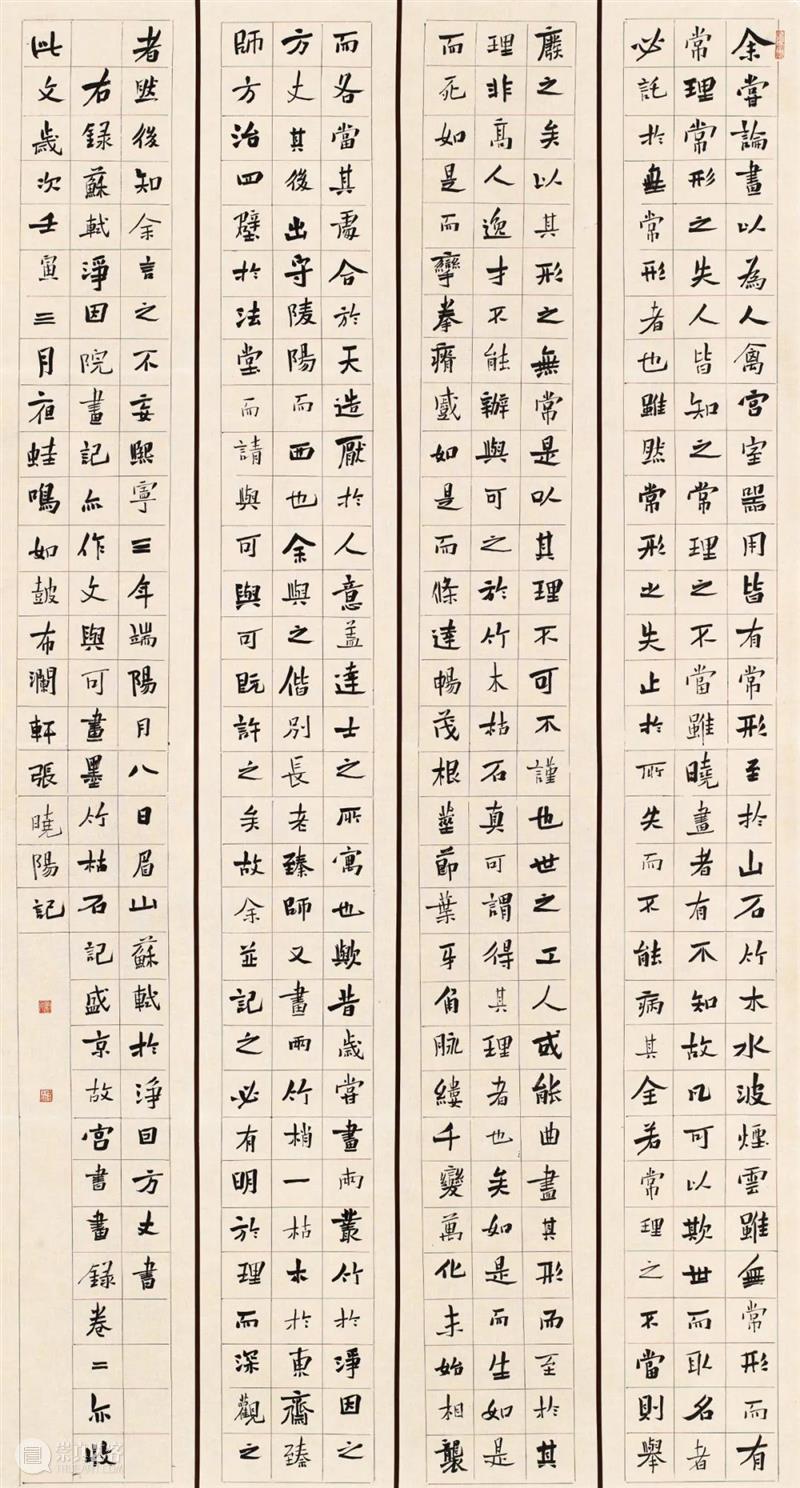 余嘗論畫以為人禽宮室器用皆有常形至於山石竹木水波煙雲雖無常形而有
常理常形之失人皆知之常理之不當雖曉畫者有不知故凡可以欺世而取名者
必託於無常形者也雖然常形之失止於所失而不能病其全若常理之不當則舉
廢之矣以其形之無常是以其理不可不謹也世之工人或能曲盡其形而至於其
理非高人逸才不能辦與可之於竹木枯石真可謂得其理者也矣如是而生如是
而死如是而攣拳瘠蹙如是而條達暢茂根莖節葉牙角脉縷千變萬化未始相襲
而各當其處合於天造厭於人意蓋達士之所寓也歟昔歲嘗畫兩叢竹於淨因之
方丈其後出守陵陽而西也余與之偕別長老臻師又畫兩竹梢一枯木於東齋臻
師方治四壁於法堂而請與可與可既許之矣故余並記之必有明於理而深觀之
者然後知余言之不妄熙寧三年端陽月八日眉山蘇軾於淨因方丈書
右錄蘇軾淨因院畫記亦作文與可畫墨竹枯石記盛京故宮書畫錄卷二亦收
此文歲次壬寅三月夜蛙鳴如鼓布瀾軒張曉陽記
崇真艺客